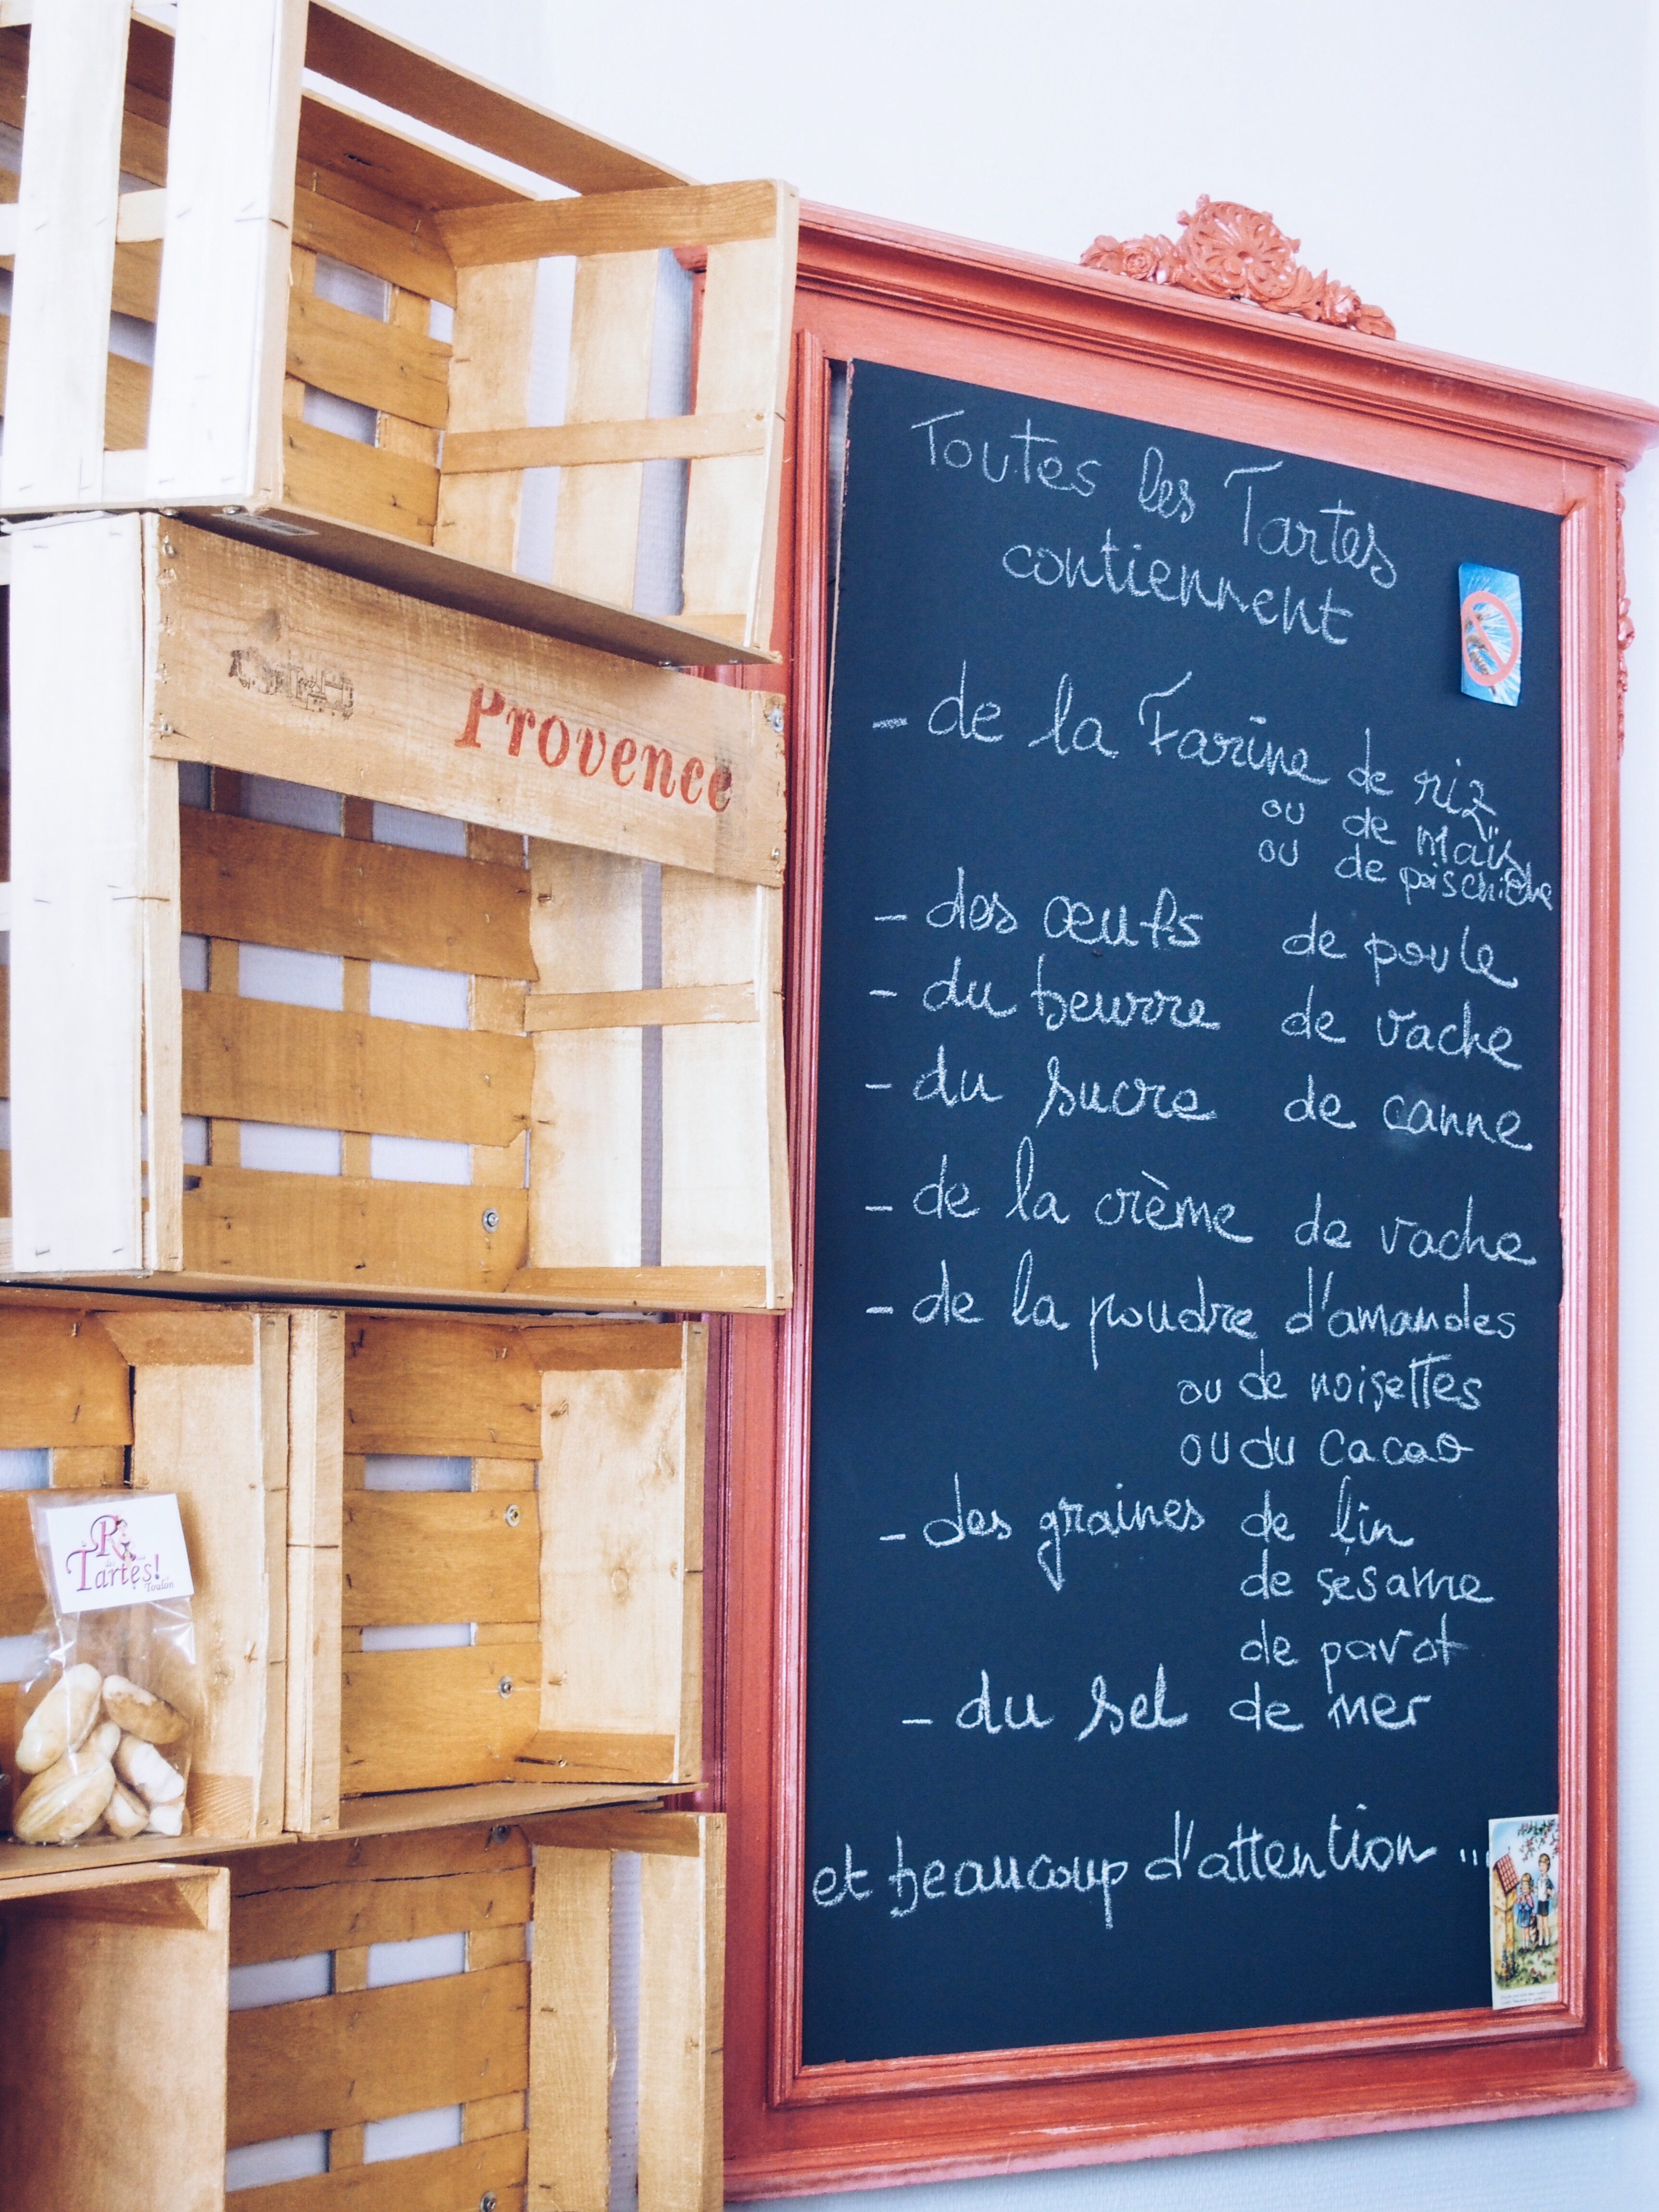 Provence
R
Tartes!
Toulon
Toutes les Tartes
contiennent
- de la Farine de riz
ou de maïs
ou de poischiche
- des œufs de poule
- du beurre de vache
- du sucre de canne
- de la crème de vache
- de la poudre d'amandes
ou de noisettes
ou du cacao
- des graines de lin
de sésame
de pavot
- du sel de mer
et beaucoup d'attention ...